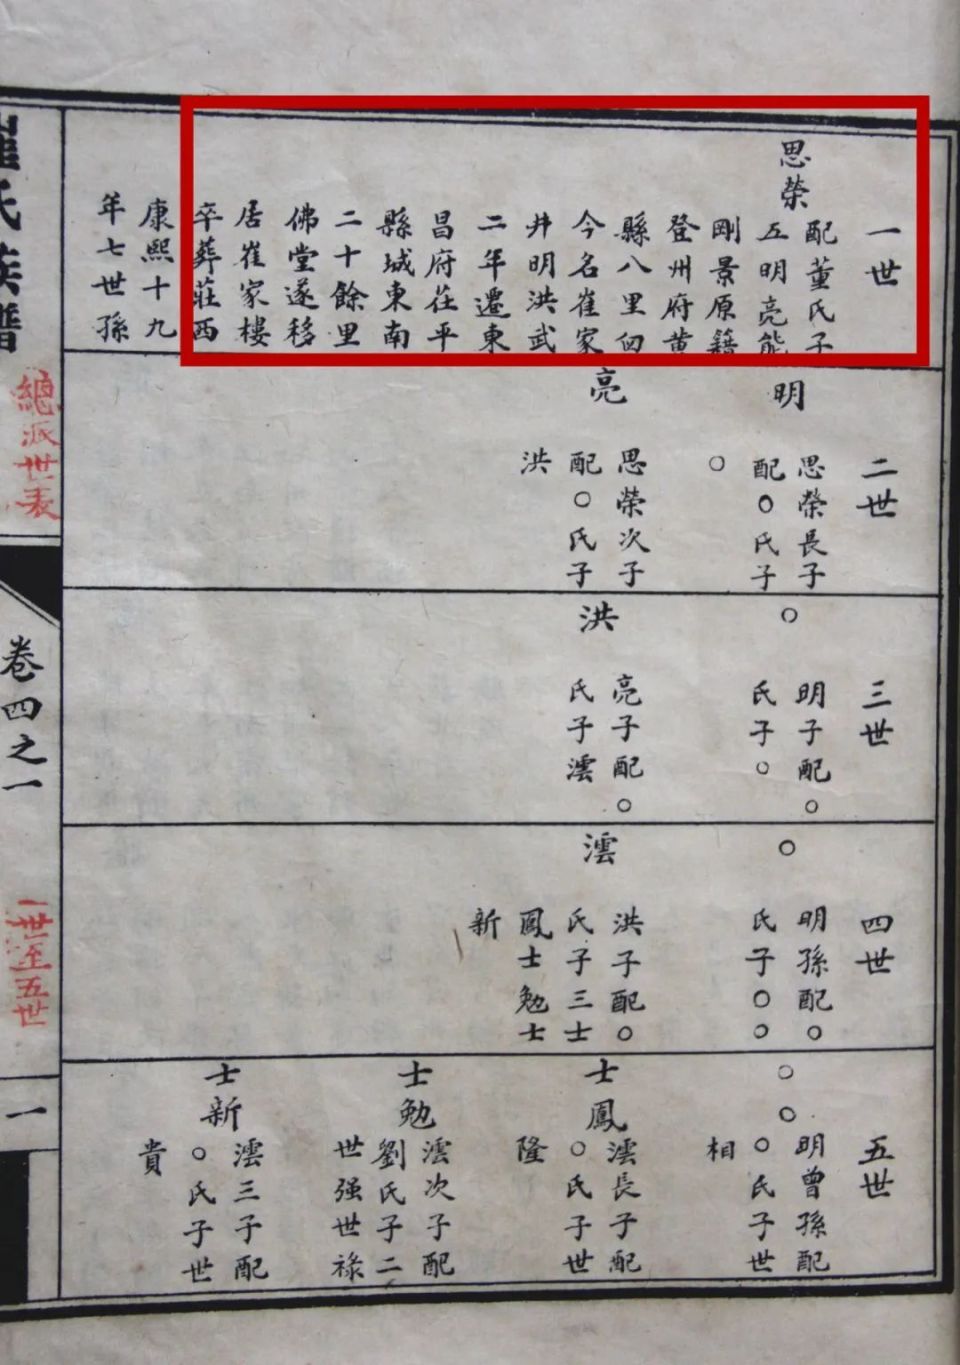 一世
思榮
配董氏子
五明亮能
剛景原籍
登州府黄
縣八里㐫
今名崔家
井明洪武
二年遷東
昌府茌平
縣城東南
二十餘里
佛堂遂移
居崔家樓
卒葬莊西
康熙十九
年七世孫
二世
明
思榮長子
配○氏子
○
亮
思榮次子
配○氏子
洪
三世
○
明子配○
氏子○
洪
亮子配○
氏子澐
四世
○
明孫配○
氏子○○
澐
洪子配○
氏子三士
鳳士勉士
新
五世
○○
明曾孫配
○氏子世
相
士鳳
澐長子配
○氏子世
隆
士勉
澐次子配
劉氏子二
世强世祿
士新
澐三子配
○氏子世
貴
崔氏族譜
總派世表
卷四之一
一世至五世
一